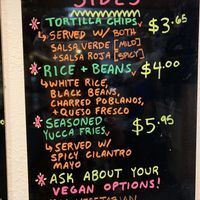 SIDES
* TORTILLA CHIPS, $3.65
↳ SERVED W/ BOTH
SALSA VERDE [MILD]
+ SALSA ROJA [SPICY]
* RICE + BEANS, $4.00
↳ WHITE RICE,
BLACK BEANS,
CHARRED POBLANOS,
+ QUESO FRESCO
* SEASONED $5.95
YUCCA FRIES,
↳ SERVED W/
SPICY CILANTRO
MAYO
* ASK ABOUT YOUR
VEGAN OPTIONS!
VEGETARIAN